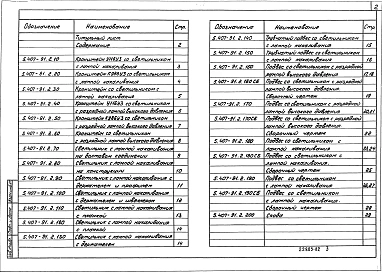 2
Обозначение Наименование Стр.
Титульный лист
Содержание 2
5.407-91.2.10 Кронштейн со светильником
с лампой накаливания 3
5.407-91.2.20 Кронштейн со светильником
с лампой накаливания 4
5.407-91.2.30 Кронштейн со светильником
с лампой накаливания 5
5.407-91.2.40 Кронштейн со светильником
с разрядной лампой высокого давления 6
5.407-91.2.50 Кронштейн со светильником
с разрядной лампой высокого давления 7
5.407-91.2.60 Кронштейн со светильником
с разрядной лампой высокого давления 8
5.407-91.2.70 Светильник с лампой накаливания
на болтовом соединении 9
5.407-91.2.80 Светильник с лампой накаливания
на 10
5.407-91.2.90 Светильник с лампой накаливания с
держателем и профилем 11
5.407-91.2.100 Светильник с лампой накаливания
с держателем и швеллером 12
5.407-91.2.110 Светильник с лампой накаливания
с планкой 13
5.407-91.2.120 Светильник с лампой накаливания
с планкой 14
5.407-91.2.130 Светильник с лампой накаливания
с держателем 14
Обозначение Наименование Стр.
5.407-91.2.140 Трубчатый подвес со светильником
с лампой накаливания 15
5.407-91.2.150 Трубчатый подвес со светильником
с лампой накаливания 16
5.407-91.2.160 Подвес со светильником с разрядной
лампой высокого давления
5.407-91.2.160СБ Подвес со светильником с разрядной
лампой высокого давления.
Сборочный чертеж 19
5.407-91.2.170 Подвес со светильником с разрядной
лампой высокого давления
5.407-91.2.170СБ Подвес со светильником с разрядной
лампой высокого давления.
Сборочный чертеж
5.407-91.2.180 Подвес со светильником с
лампой накаливания
5.407-91.2.180СБ Подвес со светильником с
лампой накаливания.
Сборочный чертеж 25
5.407-91.2.190 Подвес со светильником
с лампой накаливания
5.407-91.2.190СБ Подвес со светильником
с лампой накаливания.
Сборочный чертеж 28
5.407-91.2.200 Скоба